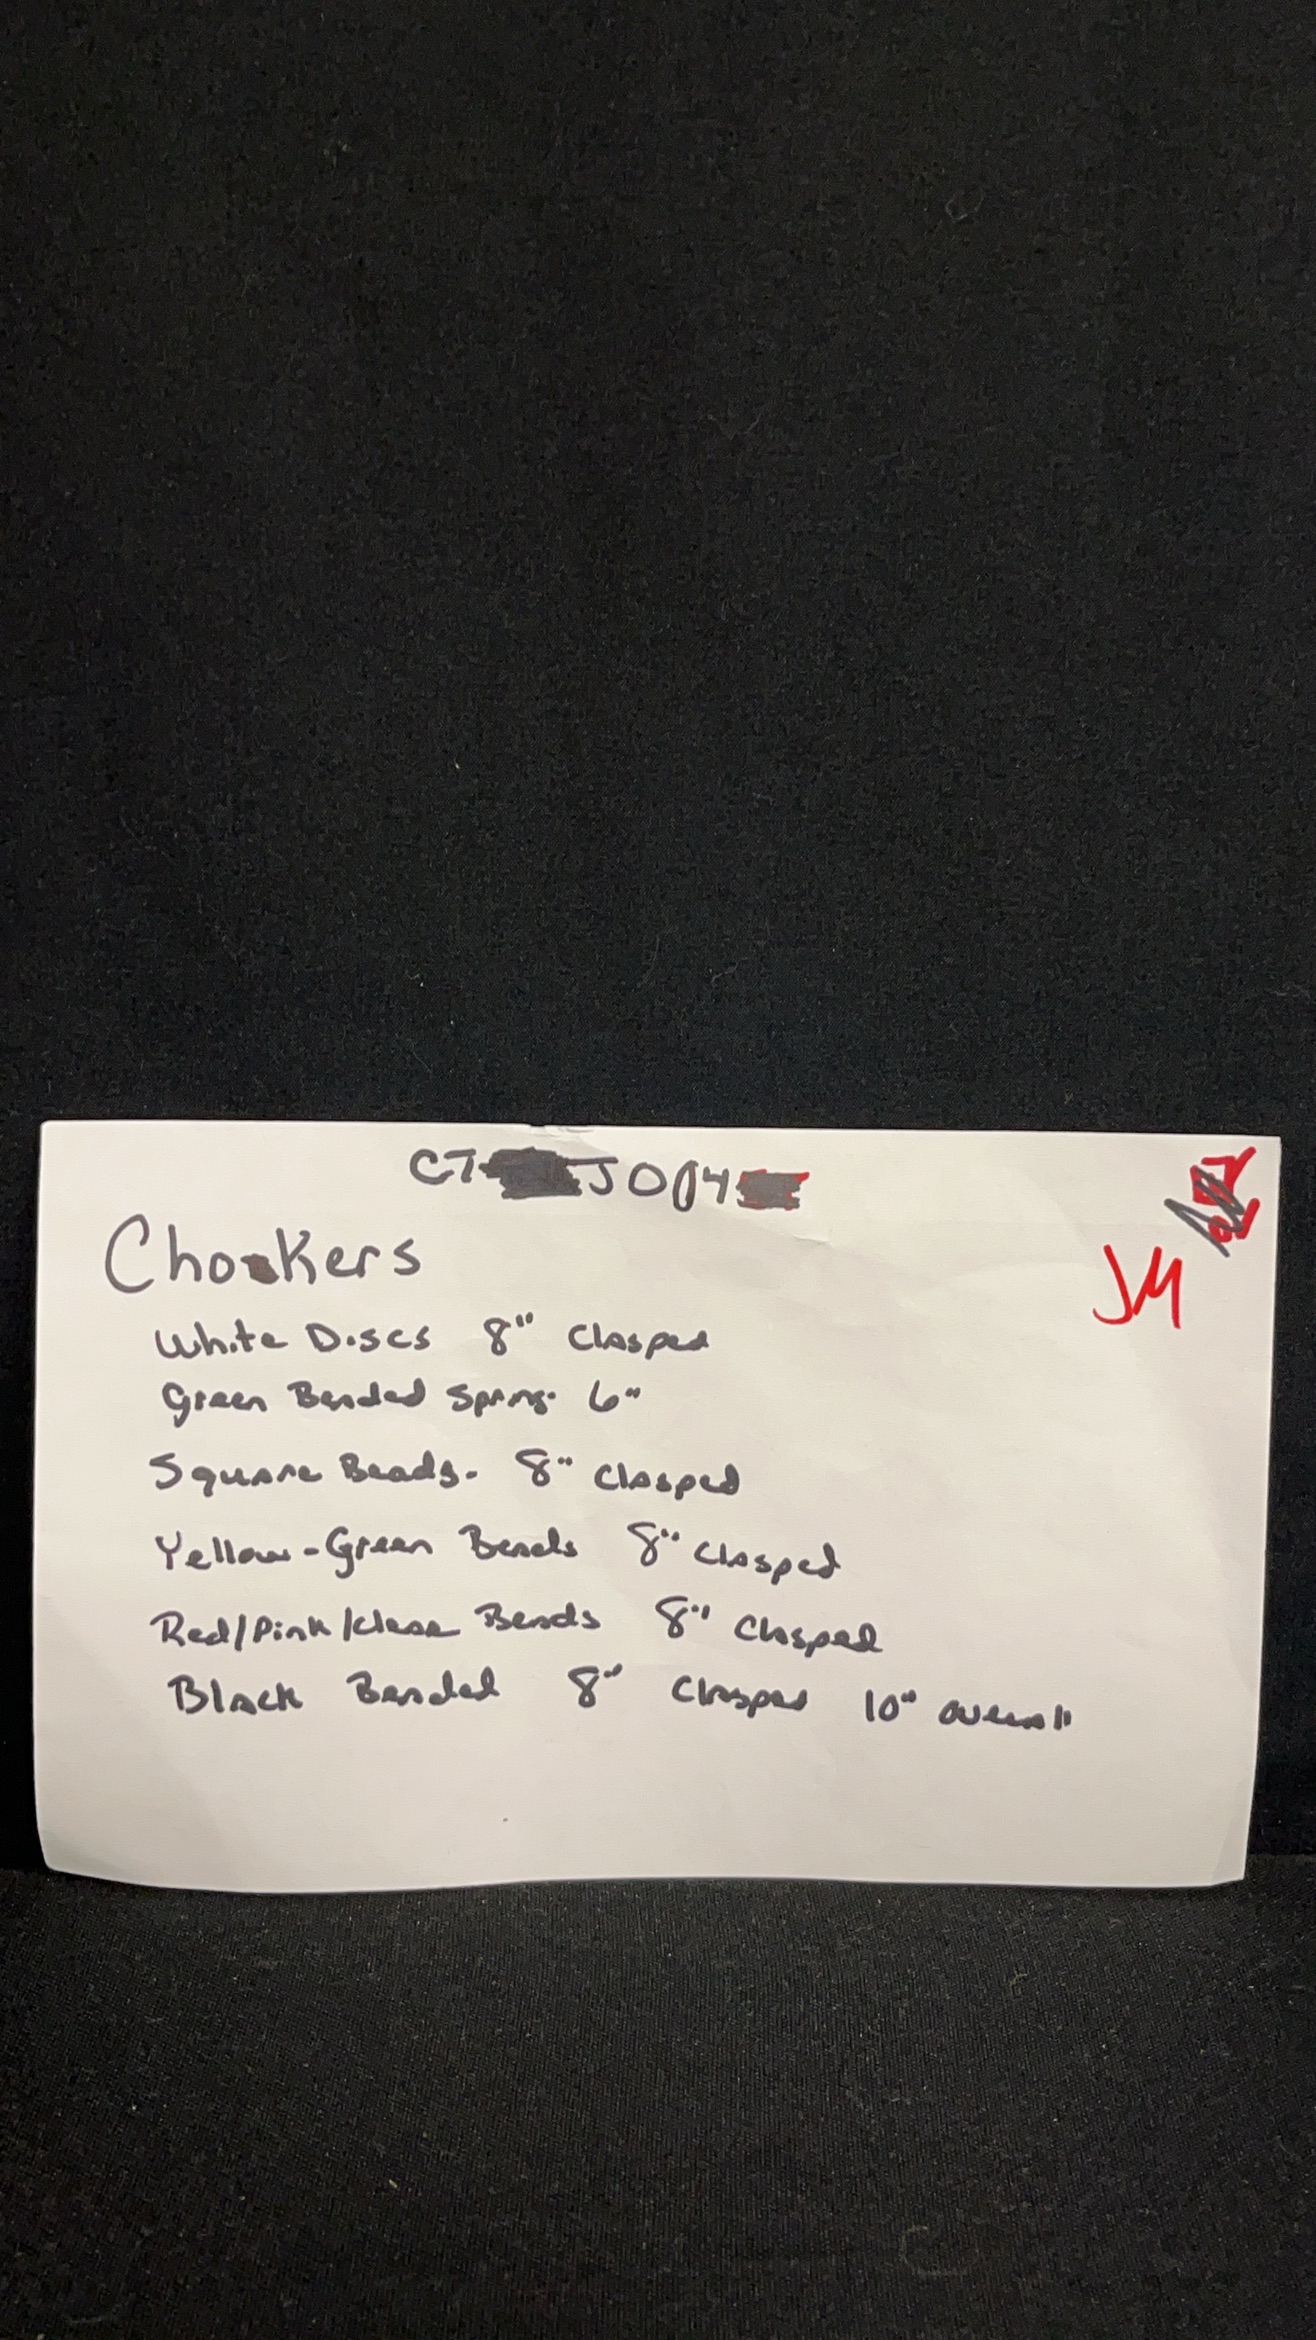 C7 J004
Chokers
JM
White Discs 8" Clasped
Green Beaded Spring. 6"
Square Beads. 8" Clasped
Yellow-Green Beads 8" Clasped
Red/Pink/Klear Beads 8" Clasped
Black Beaded 8" Clasped 10" overall